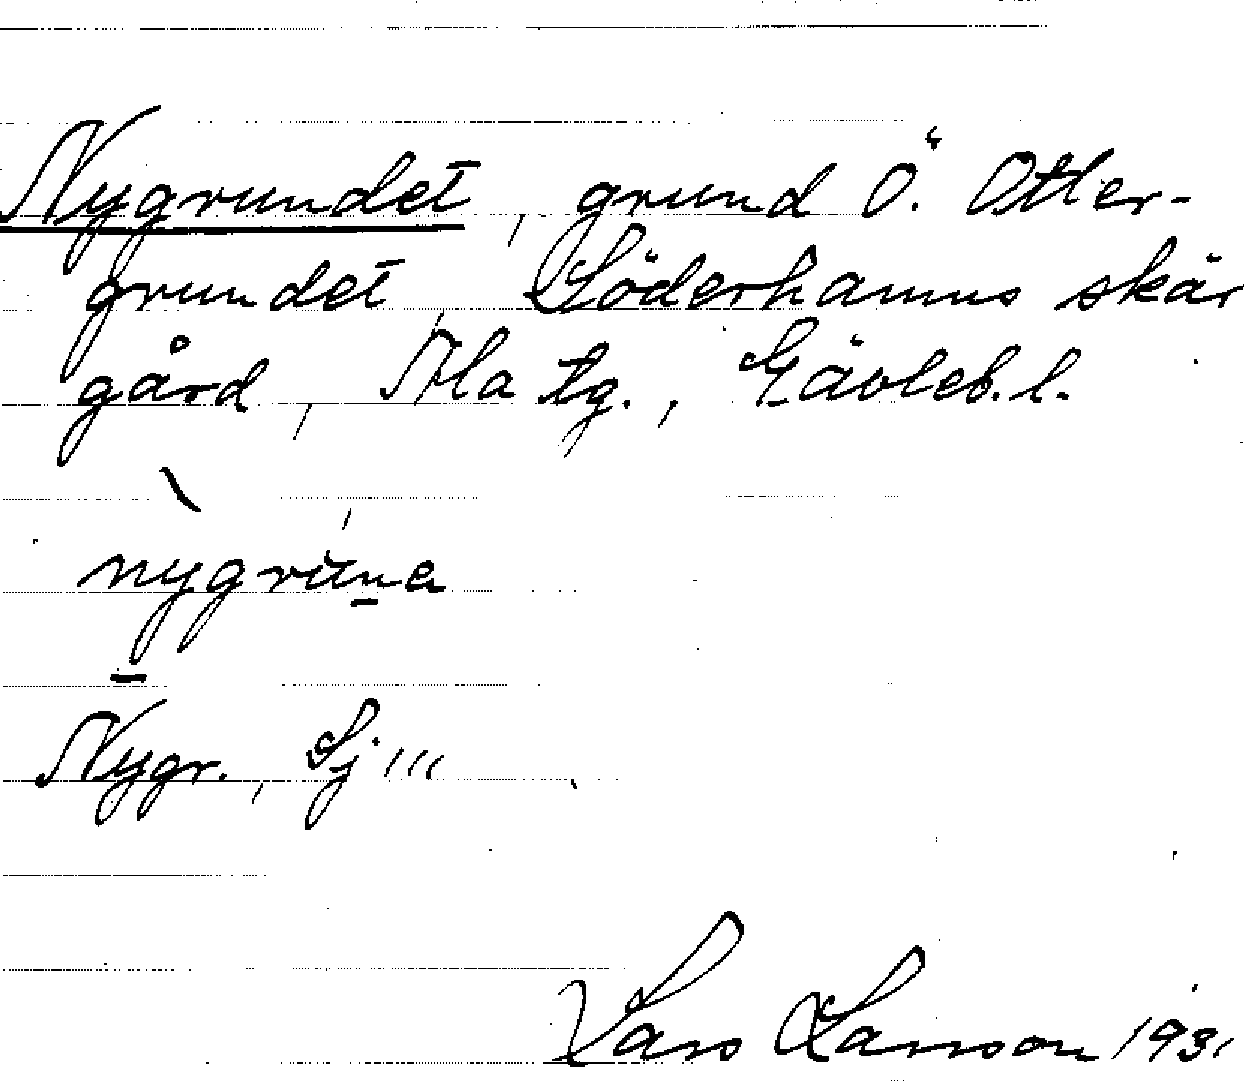 Nygrundet, grund Ö. Otter-
grundet, Söderhamns skär
gård, Ala tg., Gävleb. l.
nygruna
Nygr., Sj III
Lars Larsson 1931